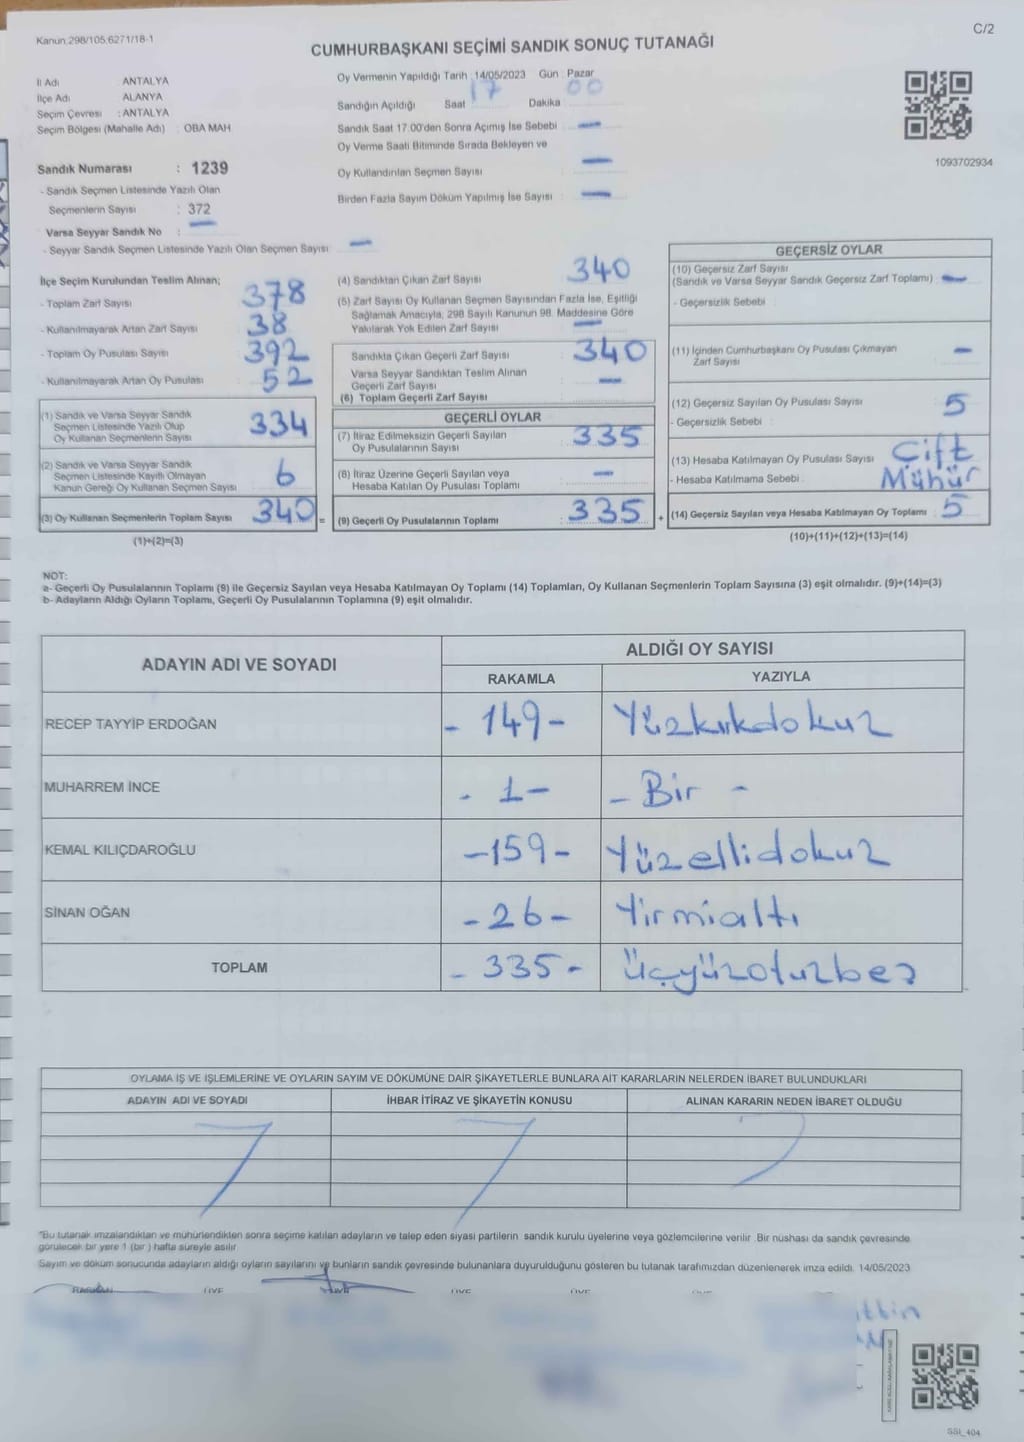 Kanun:298/105,6271/18-1
C/2
CUMHURBAŞKANI SEÇİMİ SANDIK SONUÇ TUTANAĞI
İl Adı ANTALYA
İlçe Adı ALANYA
Seçim Çevresi : ANTALYA
Seçim Bölgesi (Mahalle Adı) : OBA MAH
Oy Vermenin Yapıldığı Tarih :14/05/2023 Gün : Pazar
Sandığın Açıldığı Saat 17 Dakika 00
Sandık Saat 17.00'den Sonra Açımış İse Sebebi : —
Oy Verme Saati Bitiminde Sırada Bekleyen ve
Oy Kullandırılan Seçmen Sayısı : —
Birden Fazla Sayım Döküm Yapılmış İse Sayısı : —
1093702934
Sandık Numarası : 1239
- Sandık Seçmen Listesinde Yazılı Olan
Seçmenlerin Sayısı : 372
Varsa Seyyar Sandık No : —
- Seyyar Sandık Seçmen Listesinde Yazılı Olan Seçmen Sayısı : —
İlçe Seçim Kurulundan Teslim Alınan;
- Toplam Zarf Sayısı : 378
- Kullanılmayarak Artan Zarf Sayısı : 38
- Toplam Oy Pusulası Sayısı : 392
- Kullanılmayarak Artan Oy Pusulası : 52
(1) Sandık ve Varsa Seyyar Sandık
Seçmen Listesinde Yazılı Olup
Oy Kullanan Seçmenlerin Sayısı : 334
(2) Sandık ve Varsa Seyyar Sandık
Seçmen Listesinde Kayıtlı Olmayan
Kanun Gereği Oy Kullanan Seçmen Sayısı : 6
(3) Oy Kullanan Seçmenlerin Toplam Sayısı : 340 =
(1)+(2)=(3)
(4) Sandıktan Çıkan Zarf Sayısı : 340
(5) Zarf Sayısı Oy Kullanan Seçmen Sayısından Fazla İse, Eşitliği
Sağlamak Amacıyla; 298 Sayılı Kanunun 98. Maddesine Göre
Yakılarak Yok Edilen Zarf Sayısı : —
Sandıkta Çıkan Geçerli Zarf Sayısı : 340
Varsa Seyyar Sandıktan Teslim Alınan
Geçerli Zarf Sayısı : —
(6) Toplam Geçerli Zarf Sayısı :
GEÇERLİ OYLAR
(7) İtiraz Edilmeksizin Geçerli Sayılan
Oy Pusulalarının Sayısı : 335
(8) İtiraz Üzerine Geçerli Sayılan veya
Hesaba Katılan Oy Pusulası Toplamı : —
(9) Geçerli Oy Pusulalarının Toplamı : 335 +
GEÇERSİZ OYLAR
(10) Geçersiz Zarf Sayısı
(Sandık ve Varsa Seyyar Sandık Geçersiz Zarf Toplamı) : —
- Geçersizlik Sebebi :
(11) İçinden Cumhurbaşkanı Oy Pusulası Çıkmayan
Zarf Sayısı : —
(12) Geçersiz Sayılan Oy Pusulası Sayısı : 5
- Geçersizlik Sebebi :
(13) Hesaba Katılmayan Oy Pusulası Sayısı : Çift
- Hesaba Katılmama Sebebi : Mühür
(14) Geçersiz Sayılan veya Hesaba Katılmayan Oy Toplamı : 5
(10)+(11)+(12)+(13)=(14)
NOT:
a- Geçerli Oy Pusulalarının Toplamı (9) ile Geçersiz Sayılan veya Hesaba Katılmayan Oy Toplamı (14) Toplamları, Oy Kullanan Seçmenlerin Toplam Sayısına (3) eşit olmalıdır. (9)+(14)=(3)
b- Adayların Aldığı Oyların Toplamı, Geçerli Oy Pusulalarının Toplamına (9) eşit olmalıdır.
ADAYIN ADI VE SOYADI ALDIĞI OY SAYISI
RAKAMLA YAZIYLA
RECEP TAYYİP ERDOĞAN - 149 - Yüzkırkdokuz
MUHARREM İNCE - 1 - - Bir -
KEMAL KILIÇDAROĞLU - 159 - Yüzellidokuz
SİNAN OĞAN - 26 - Yirmialtı
TOPLAM - 335 - Üçyüzotuzbeş
OYLAMA İŞ VE İŞLEMLERİNE VE OYLARIN SAYIM VE DÖKÜMÜNE DAİR ŞİKAYETLERLE BUNLARA AİT KARARLARIN NELERDEN İBARET BULUNDUKLARI
ADAYIN ADI VE SOYADI İHBAR İTİRAZ VE ŞİKAYETİN KONUSU ALINAN KARARIN NEDEN İBARET OLDUĞU
"Bu tutanak imzalandıktan ve mühürlendikten sonra seçime katılan adayların ve talep eden siyasi partilerin sandık kurulu üyelerine veya gözlemcilerine verilir .Bir nüshası da sandık çevresinde
görülecek bir yere 1 (bir ) hafta süreyle asılır
Sayım ve döküm sonucunda adayların aldığı oyların sayılarını ve bunların sandık çevresinde bulunanlara duyurulduğunu gösteren bu tutanak tarafımızdan düzenlenerek imza edildi. 14/05/2023
SSI_404